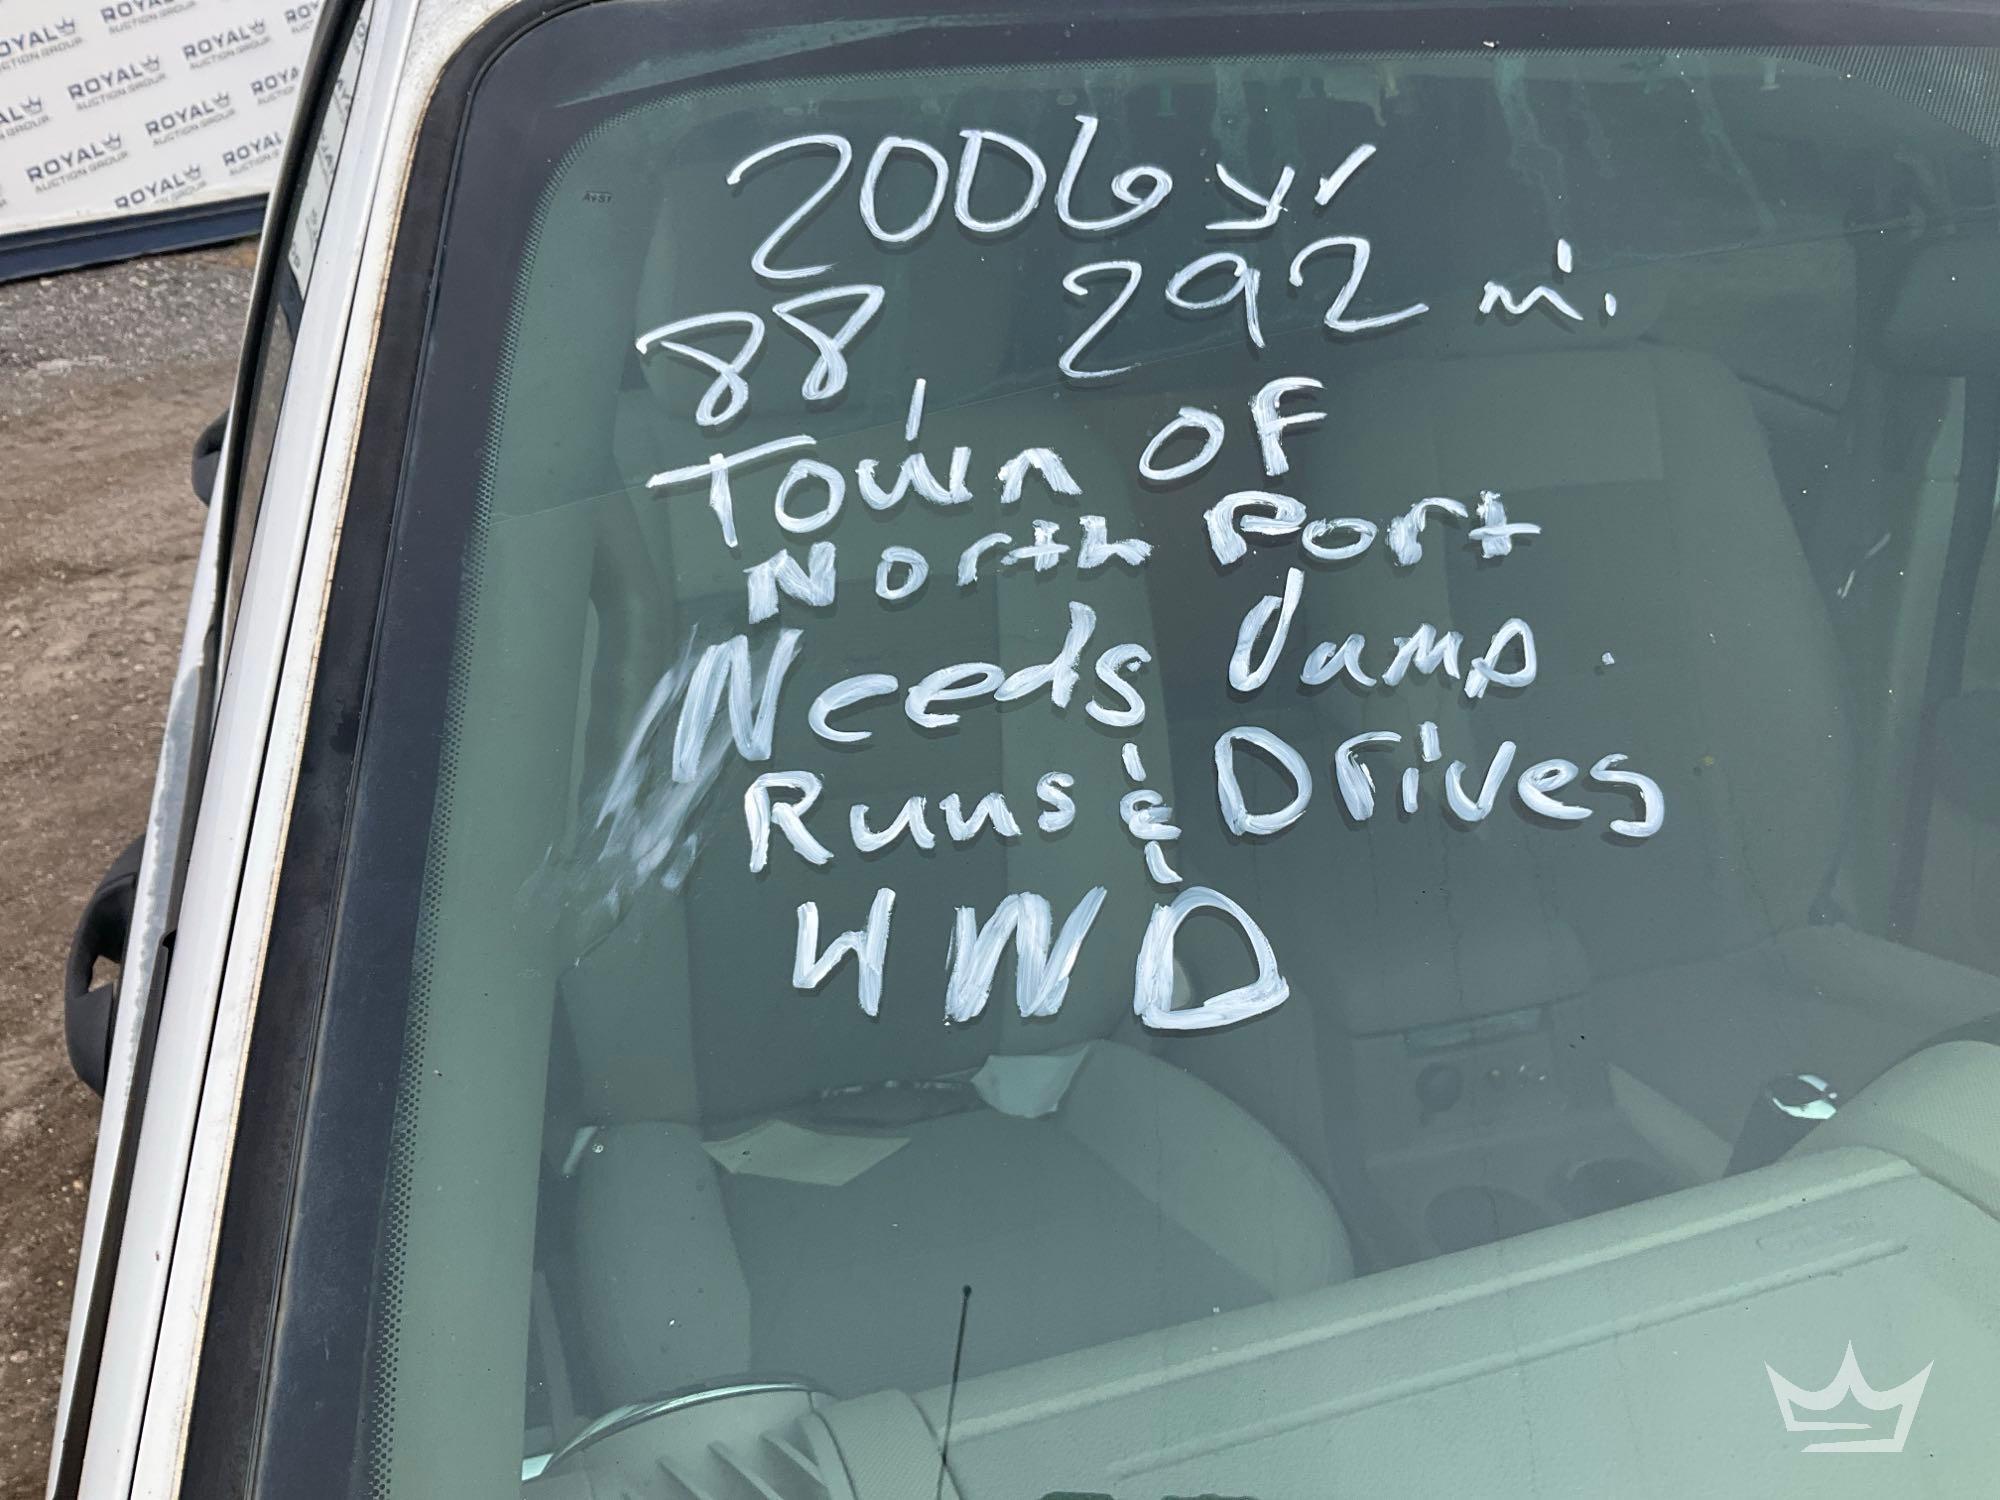 ROYAL AUCTION GROUP
ROYAL AUCTION GROUP
ROYAL AUCTION GROUP
ROYAL AUCTION GROUP
ROYAL AUCTION GROUP
ROYAL AUCTION GROUP
2006 yr
88 292 mi.
Town of
North Port
Needs Jump.
Runs & Drives
4WD